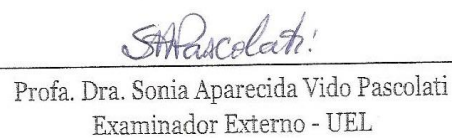 SAPascolati
Profa. Dra. Sonia Aparecida Vido Pascolati
Examinador Externo - UEL